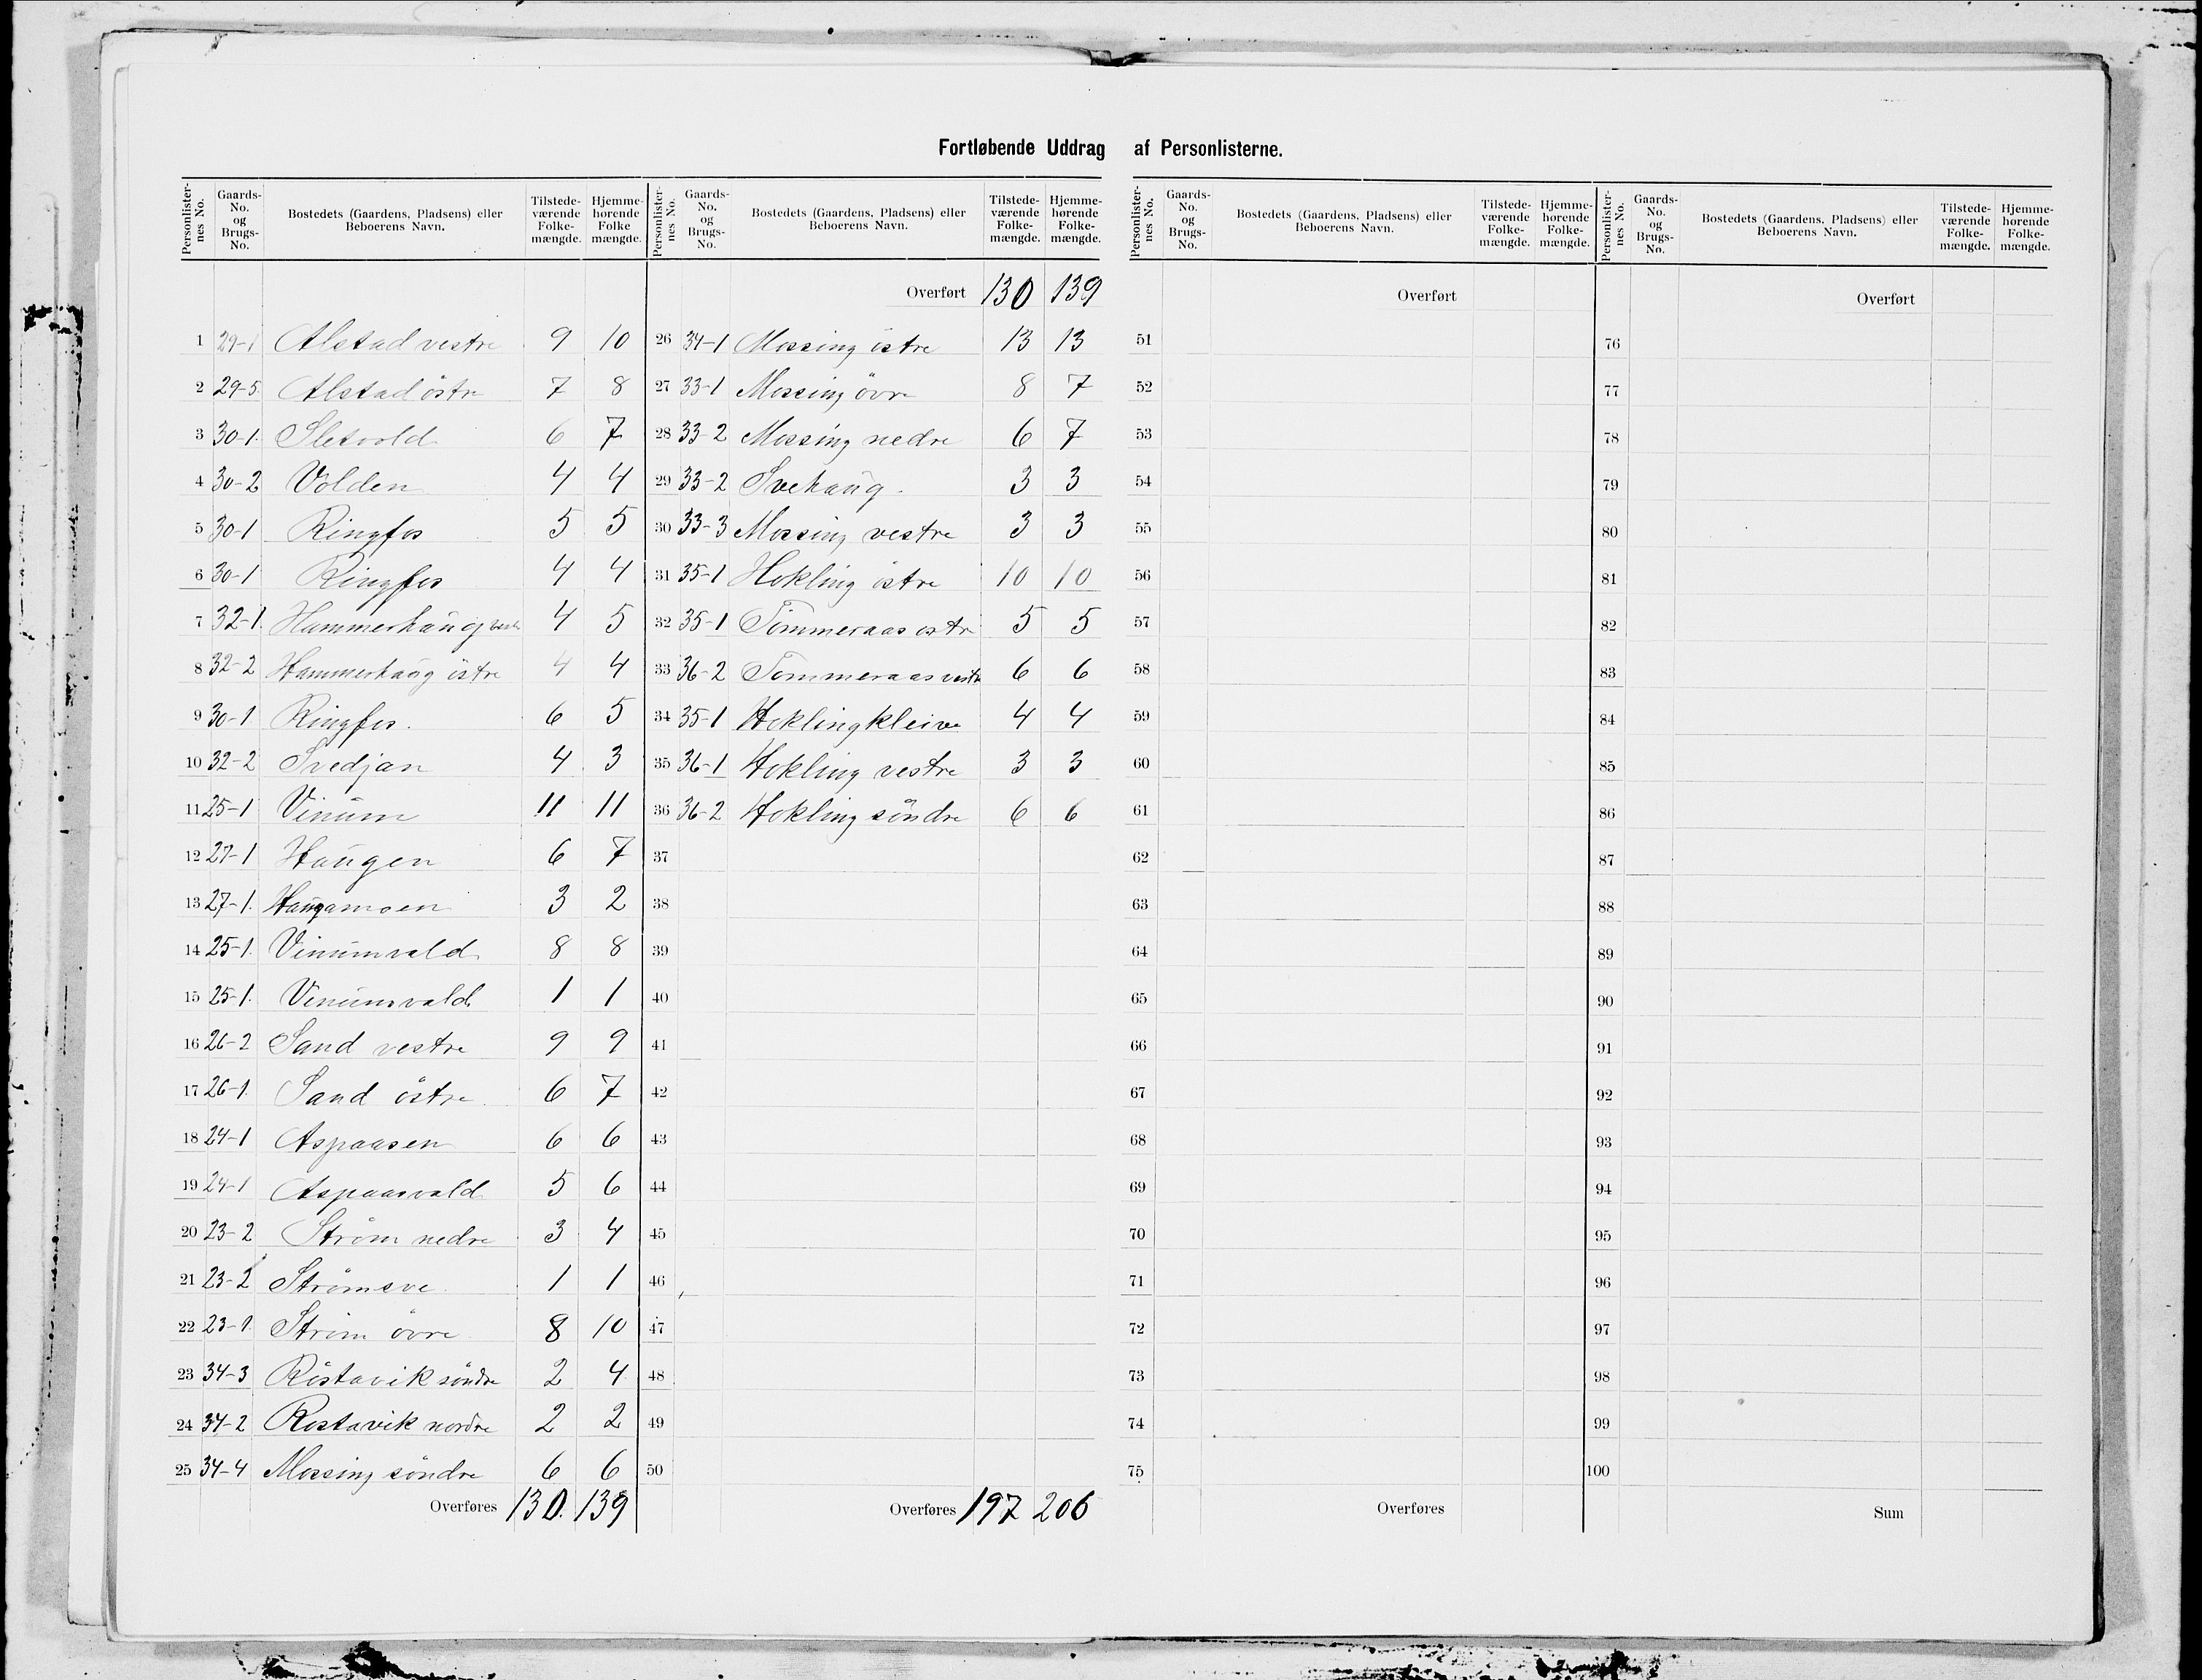 Fortløbende Uddrag af Personlisterne.
Personlisternes No. Gaards-No. og Brugs-No. Bostedets (Gaardens, Pladsens) eller Beboerens Navn. Tilstedeværende Folkemængde. Hjemmehørende Folkemængde.
1 29-1 Alstad vestre 9 10
2 29-5 Alstad östre 7 8
3 30-1 Sletvold 6 7
4 30-2 Volden 4 4
5 30-1 Ringfos 5 5
6 30-1 Ringfos 4 4
7 32-1 Hammerhaug vestre 4 5
8 32-2 Hammerhaug östre 4 4
9 30-1 Ringfos 6 5
10 32-2 Svedjan 4 3
11 25-1 Vinum 11 11
12 27-1 Haugen 6 7
13 27-1 Haugamoen 3 2
14 25-1 Vinumvald 8 8
15 25-1 Vinumsvald 1 1
16 26-2 Sand vestre 9 9
17 26-1 Sand östre 6 7
18 24-1 Aspaasen 6 6
19 24-1 Aspaasvald 5 6
20 23-2 Ström nedre 3 4
21 23-2 Strömsve 1 1
22 23-1 Ström övre 8 10
23 34-3 Röstavik söndre 2 4
24 34-2 Röstavik nordre 2 2
25 34-4 Mossing söndre 6 6
Overføres 130. 139
Personlisternes No. Gaards-No. og Brugs-No. Bostedets (Gaardens, Pladsens) eller Beboerens Navn. Tilstedeværende Folkemængde. Hjemmehørende Folkemængde.
Overført 130 139
26 34-1 Mossing östre 13 13
27 33-1 Mossing övre 8 7
28 33-2 Mossing nedre 6 7
29 33-2 Svehaug 3 3
30 33-3 Mossing vestre 3 3
31 35-1 Hokling östre 10 10
32 35-1 Tömmeraas östre 5 5
33 36-2 Tömmeraas vestre 6 6
34 35-1 Hoklingkleive 4 4
35 36-1 Hokling vestre 3 3
36 36-2 Hokling söndre 6 6
37
38
39
40
41
42
43
44
45
46
47
48
49
50
Overføres 197 206
Personlisternes No. Gaards-No. og Brugs-No. Bostedets (Gaardens, Pladsens) eller Beboerens Navn. Tilstedeværende Folkemængde. Hjemmehørende Folkemængde.
Overført
51
52
53
54
55
56
57
58
59
60
61
62
63
64
65
66
67
68
69
70
71
72
73
74
75
Overføres
Personlisternes No. Gaards-No. og Brugs-No. Bostedets (Gaardens, Pladsens) eller Beboerens Navn. Tilstedeværende Folkemængde. Hjemmehørende Folkemængde.
Overført
76
77
78
79
80
81
82
83
84
85
86
87
88
89
90
91
92
93
94
95
96
97
98
99
100
Sum